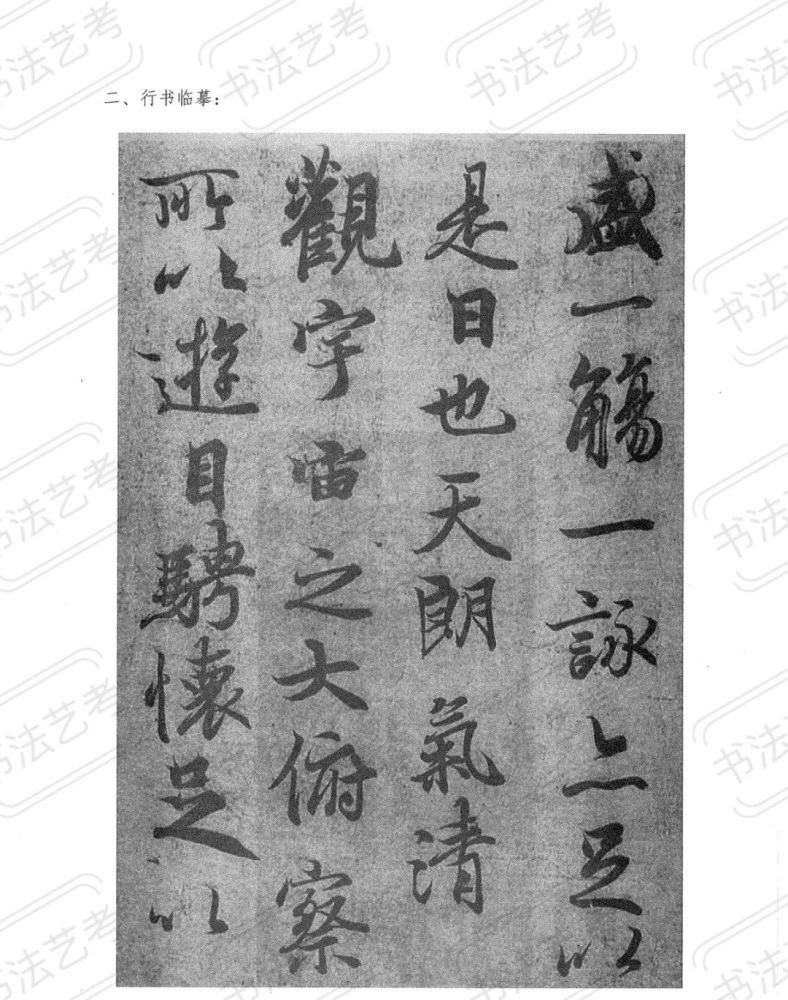 二、行书临摹：
盛一觴一詠亦足以
是日也天朗氣清
觀宇宙之大俯察
所以遊目騁懷足以
书法艺考